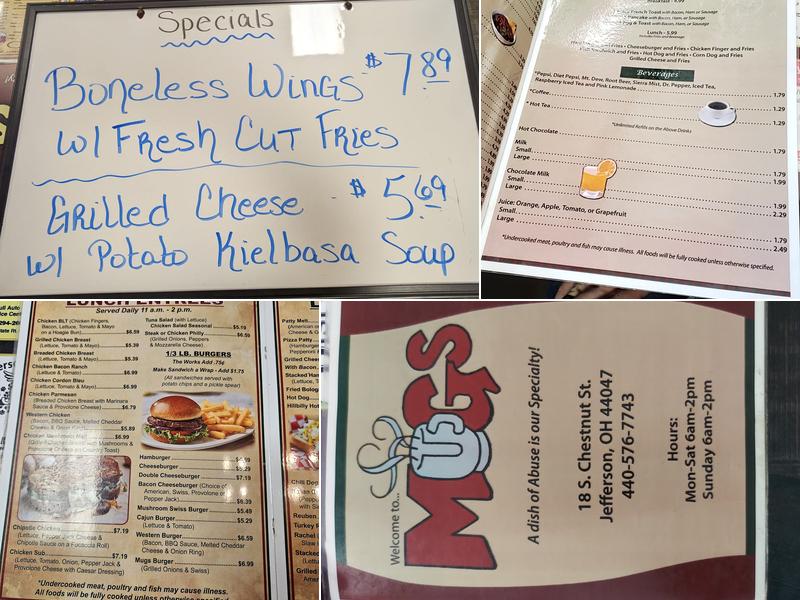 Specials
Boneless Wings $7.89
w/ Fresh Cut Fries
Grilled Cheese $5.69
w/ Potato Kielbasa Soup
French Toast with Bacon, Ham or Sausage
Pancake with Bacon, Ham, or Sausage
& Toast with Bacon, Ham or Sausage
Lunch - 5.99
Includes Fries and Beverage
Fries • Cheeseburger and Fries • Chicken Finger and Fries
Sandwich and Fries • Hot Dog and Fries • Corn Dog and Fries
Grilled Cheese and Fries
Beverages
*Pepsi, Diet Pepsi, Mt. Dew, Root Beer, Sierra Mist, Dr. Pepper, Iced Tea,
Raspberry Iced Tea and Pink Lemonade 1.79
*Coffee 1.29
* Hot Tea 1.29
*Unlimited Refills on the Above Drinks
Hot Chocolate 1.79
Milk
Small
Large
Chocolate Milk
Small
Large
1.79
1.99
1.99
2.29
Juice: Orange, Apple, Tomato, or Grapefruit
Small 1.79
Large 2.49
*Undercooked meat, poultry and fish may cause illness. All foods will be fully cooked unless otherwise specified.
LUNCH ENTREES
Served Daily 11 a.m. - 2 p.m.
Chicken BLT (Chicken Fingers,
Bacon, Lettuce, Tomato & Mayo
on a Hoagie Bun) $6.59
Grilled Chicken Breast
(Lettuce, Tomato & Mayo) $5.39
Breaded Chicken Breast
(Lettuce, Tomato & Mayo) $5.39
Chicken Bacon Ranch
(Lettuce & Tomato) $6.99
Chicken Cordon Bleu
(Lettuce, Tomato & Mayo) $6.99
Chicken Parmesan
(Breaded Chicken Breast with Marinara
Sauce & Provolone Cheese) $6.79
Western Chicken
(Bacon, BBQ Sauce, Melted Cheddar
Cheese & Onion Ring) $5.89
Chicken Mushroom Melt $6.99
Provolone Cheese on Country Toast)
Chipotle Chicken $7.19
(Lettuce, Pepper Jack Cheese &
Chipotle Sauce on a Focaccia Roll)
Chicken Sub $7.19
(Lettuce, Tomato, Onion, Pepper Jack &
Provolone Cheese with Caesar Dressing)
Tuna Salad (with Lettuce)
Chicken Salad Seasonal $5.19
Steak or Chicken Philly $6.59
(Grilled Onions, Peppers
& Mozzarella Cheese)
1/3 LB. BURGERS
The Works Add .75¢
Make Sandwich a Wrap - Add $1.75
(All sandwiches served with
potato chips and a pickle spear)
Hamburger
Cheeseburger $5.29
Double Cheeseburger $7.19
Bacon Cheeseburger (Choice of
American, Swiss, Provolone or
Pepper Jack) $6.39
Mushroom Swiss Burger $5.49
Cajun Burger $5.29
(Lettuce & Tomato)
Western Burger $6.59
(Bacon, BBQ Sauce, Melted Cheddar
Cheese & Onion Ring)
Mugs Burger $6.99
(Grilled Onions & Swiss)
*Undercooked meat, poultry and fish may cause illness.
All foods will be fully cooked unless otherwise
Patty Melt
Pizza Patty
(Hamburger
Grilled Chees
With Bacon
Stacked Ham
Fried Bologn
Hot Dog
Hillbilly Hot
Chili Dog
Reuben
Turkey R
Rachel
Stacked
Grilled
Welcome to...
MUGS
A dish of Abuse is our Specialty!
18 S. Chestnut St.
Jefferson, OH 44047
440-576-7743
Hours:
Mon-Sat 6am-2pm
Sunday 6am-2pm